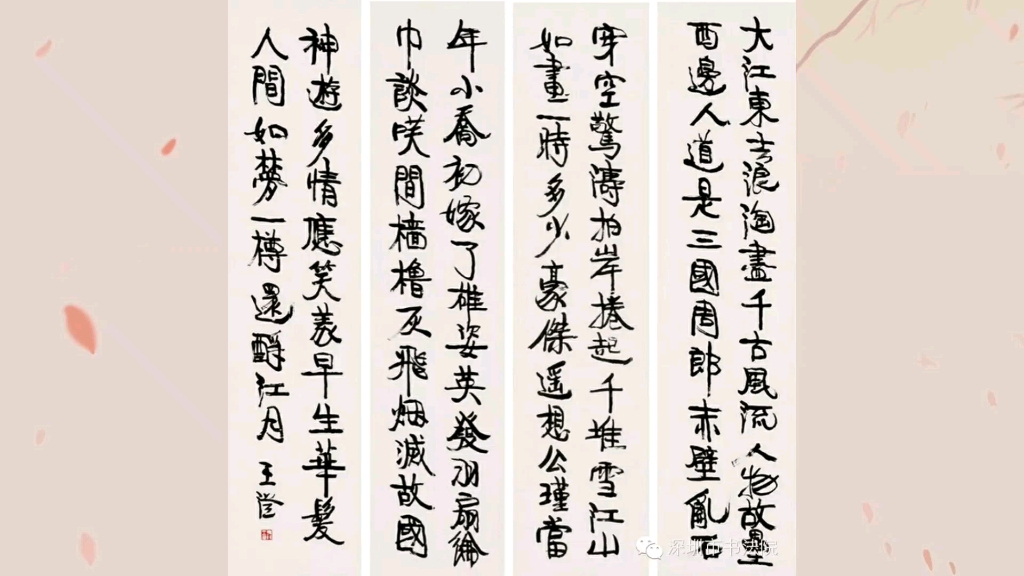 大江東去浪淘盡千古風流人物故壘
西邊人道是三國周郎赤壁亂石
穿空驚濤拍岸捲起千堆雪江山
如畫一時多少豪傑遥想公瑾當
年小喬初嫁了雄姿英發羽扇綸
巾談咲間檣櫓灰飛烟滅故國
神遊多情應笑我早生華髮
人間如夢一樽還酹江月 王登
深圳市书法院